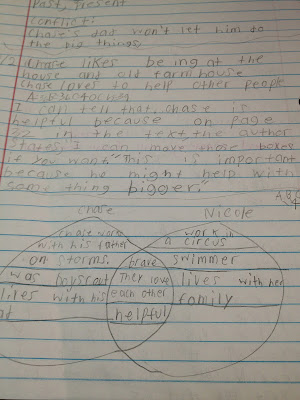 Past, Present
conflict:
Chase's dad won't let him to
the big things.
1/2 chase likes being at the
house and old farmhouse
Chase loves to help other people
I can tell that, chase is
helpful because on page
22 in the text the author
states, I can move those boxes
if you want." This is important
because he might help with
some thing bigger."
Chase Nicole
chase work
with his father
on storms.
was boyscout
lives with his
brave
They love
each other
helpful
work in
a circus
swimmer
lives with her
family